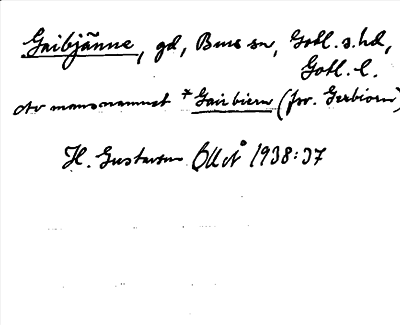 Gaibjänne, gd, Burs sn, Gotl. s. hd,
Gotl. l.
Av mansnamnet *Gairbiorn (jvr. Gerbiorn)
H. Gustavson OUÅ 1938:37